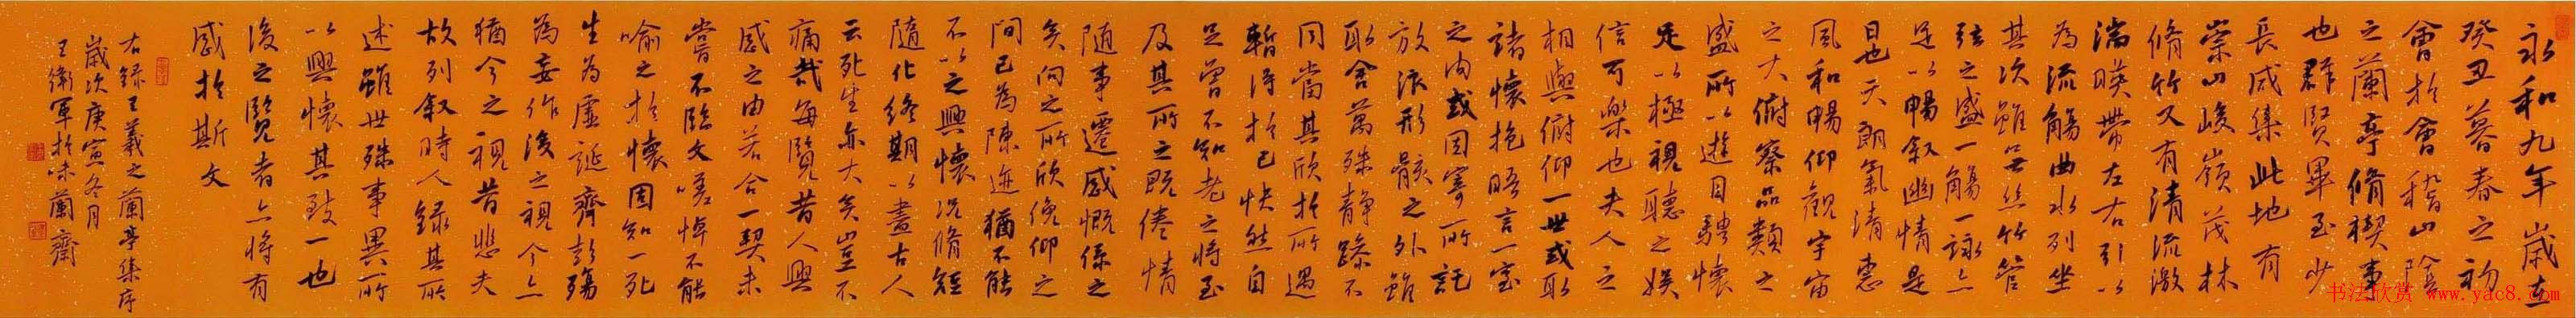 永和九年歲在
癸丑暮春之初
會於會稽山陰
之蘭亭脩禊事
也群賢畢至少
長咸集此地有
崇山峻嶺茂林
脩竹又有清流激
湍暎帶左右引以
為流觴曲水列坐
其次雖無絲竹管
弦之盛一觴一詠亦
足以暢敘幽情是
日也天朗氣清惠
風和暢仰觀宇宙
之大俯察品類之
盛所以遊目騁懷
足以極視聽之娛
信可樂也夫人之
相與俯仰一世或取
諸懷抱晤言一室
之內或因寄所託
放浪形骸之外雖
取舍萬殊靜躁不
同當其欣於所遇
暫得於己快然自
足曾不知老之將至
及其所之既倦情
隨事遷感慨係之
矣向之所欣俛仰之
間已為陳迹猶不能
不以之興懷況脩短
隨化終期以盡古人
云死生亦大矣豈不
痛哉每覽昔人興
感之由若合一契未
嘗不臨文嗟悼不能
喻之於懷固知一死
生為虛誕齊彭殤
為妄作後之視今亦
猶今之視昔悲夫
故列敘時人錄其所
述雖世殊事異所
以興懷其致一也
後之覽者亦將有
感於斯文
右錄王羲之蘭亭集序
歲次庚寅冬月
王衛軍於味蘭齋
书法欣赏 www.yac8.com